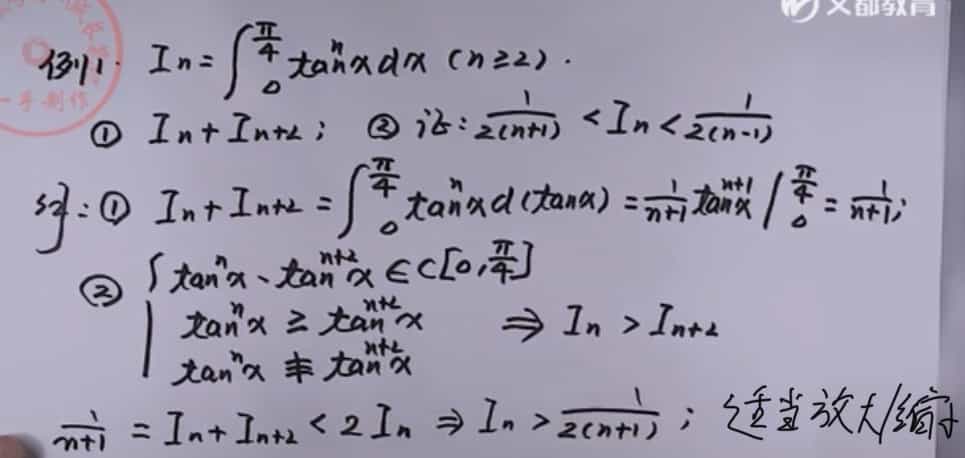 文都教育
手制作
例11. Iₙ = ∫₀^{π/4} tanⁿx dx (n≥2).
① Iₙ + Iₙ₊₂; ② 证: 1/(2(n+1)) < Iₙ < 1/(2(n-1))
解: ① Iₙ + Iₙ₊₂ = ∫₀^{π/4} tanⁿx d(tanx) = 1/(n+1) tanⁿ⁺¹x |₀^{π/4} = 1/(n+1);
② { tanⁿx、tanⁿ⁺²x ∈ C[0, π/4]
tanⁿx ≥ tanⁿ⁺²x ⇒ Iₙ > Iₙ₊₂
tanⁿx ≢ tanⁿ⁺²x
1/(n+1) = Iₙ + Iₙ₊₂ < 2Iₙ ⇒ Iₙ > 1/(2(n+1)); 适当放大/缩小